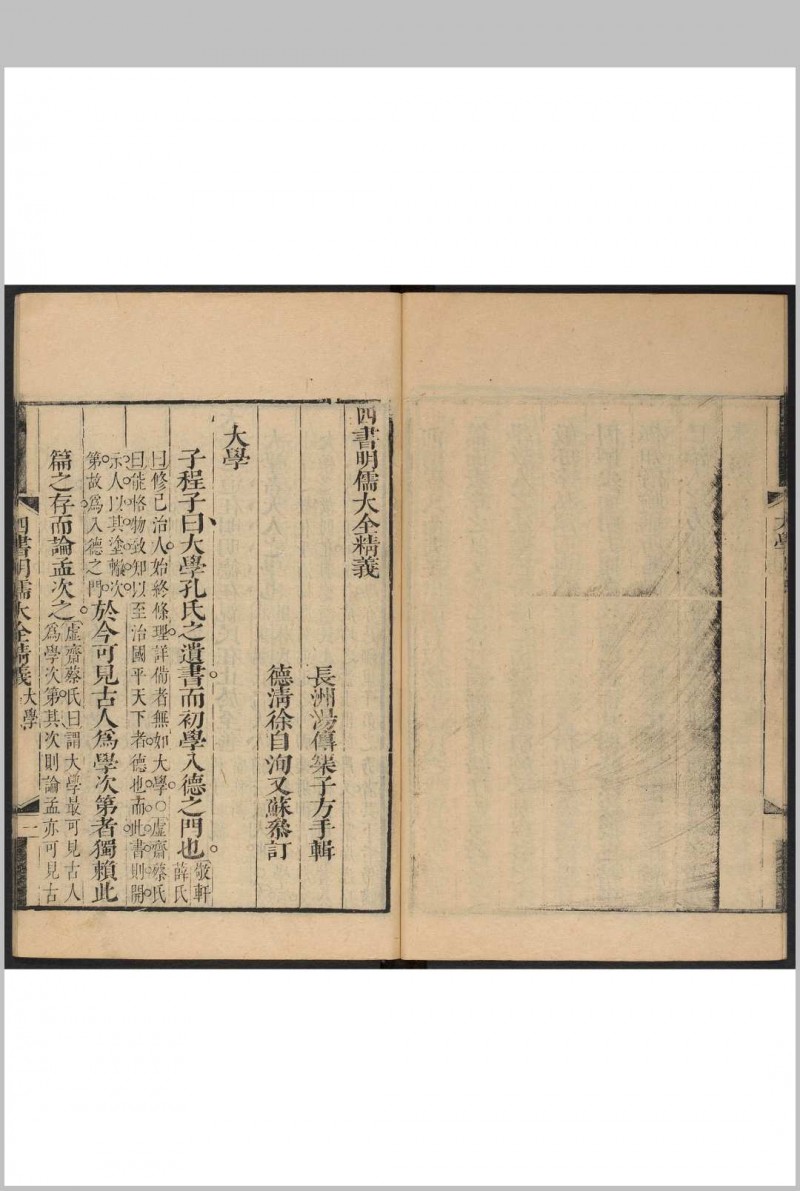 四書明儒大全精義
長洲湯傳榘子方手輯
德清徐自洵又蘇叅訂
大學
子程子曰大學孔氏之遺書而初學入德之門也敬軒薛氏
曰修己治人始終條理詳備者無如大學○虛齋蔡氏
曰能格物致知以至治國平天下者德也而此書則開
示人以其塗轍次
第故爲入德之門於今可見古人爲學次第者獨賴此
篇之存而論孟次之虛齋蔡氏曰謂大學最可見古人
爲學次第其次則論孟亦可見古
四書明儒大全精義 大學 一
大學